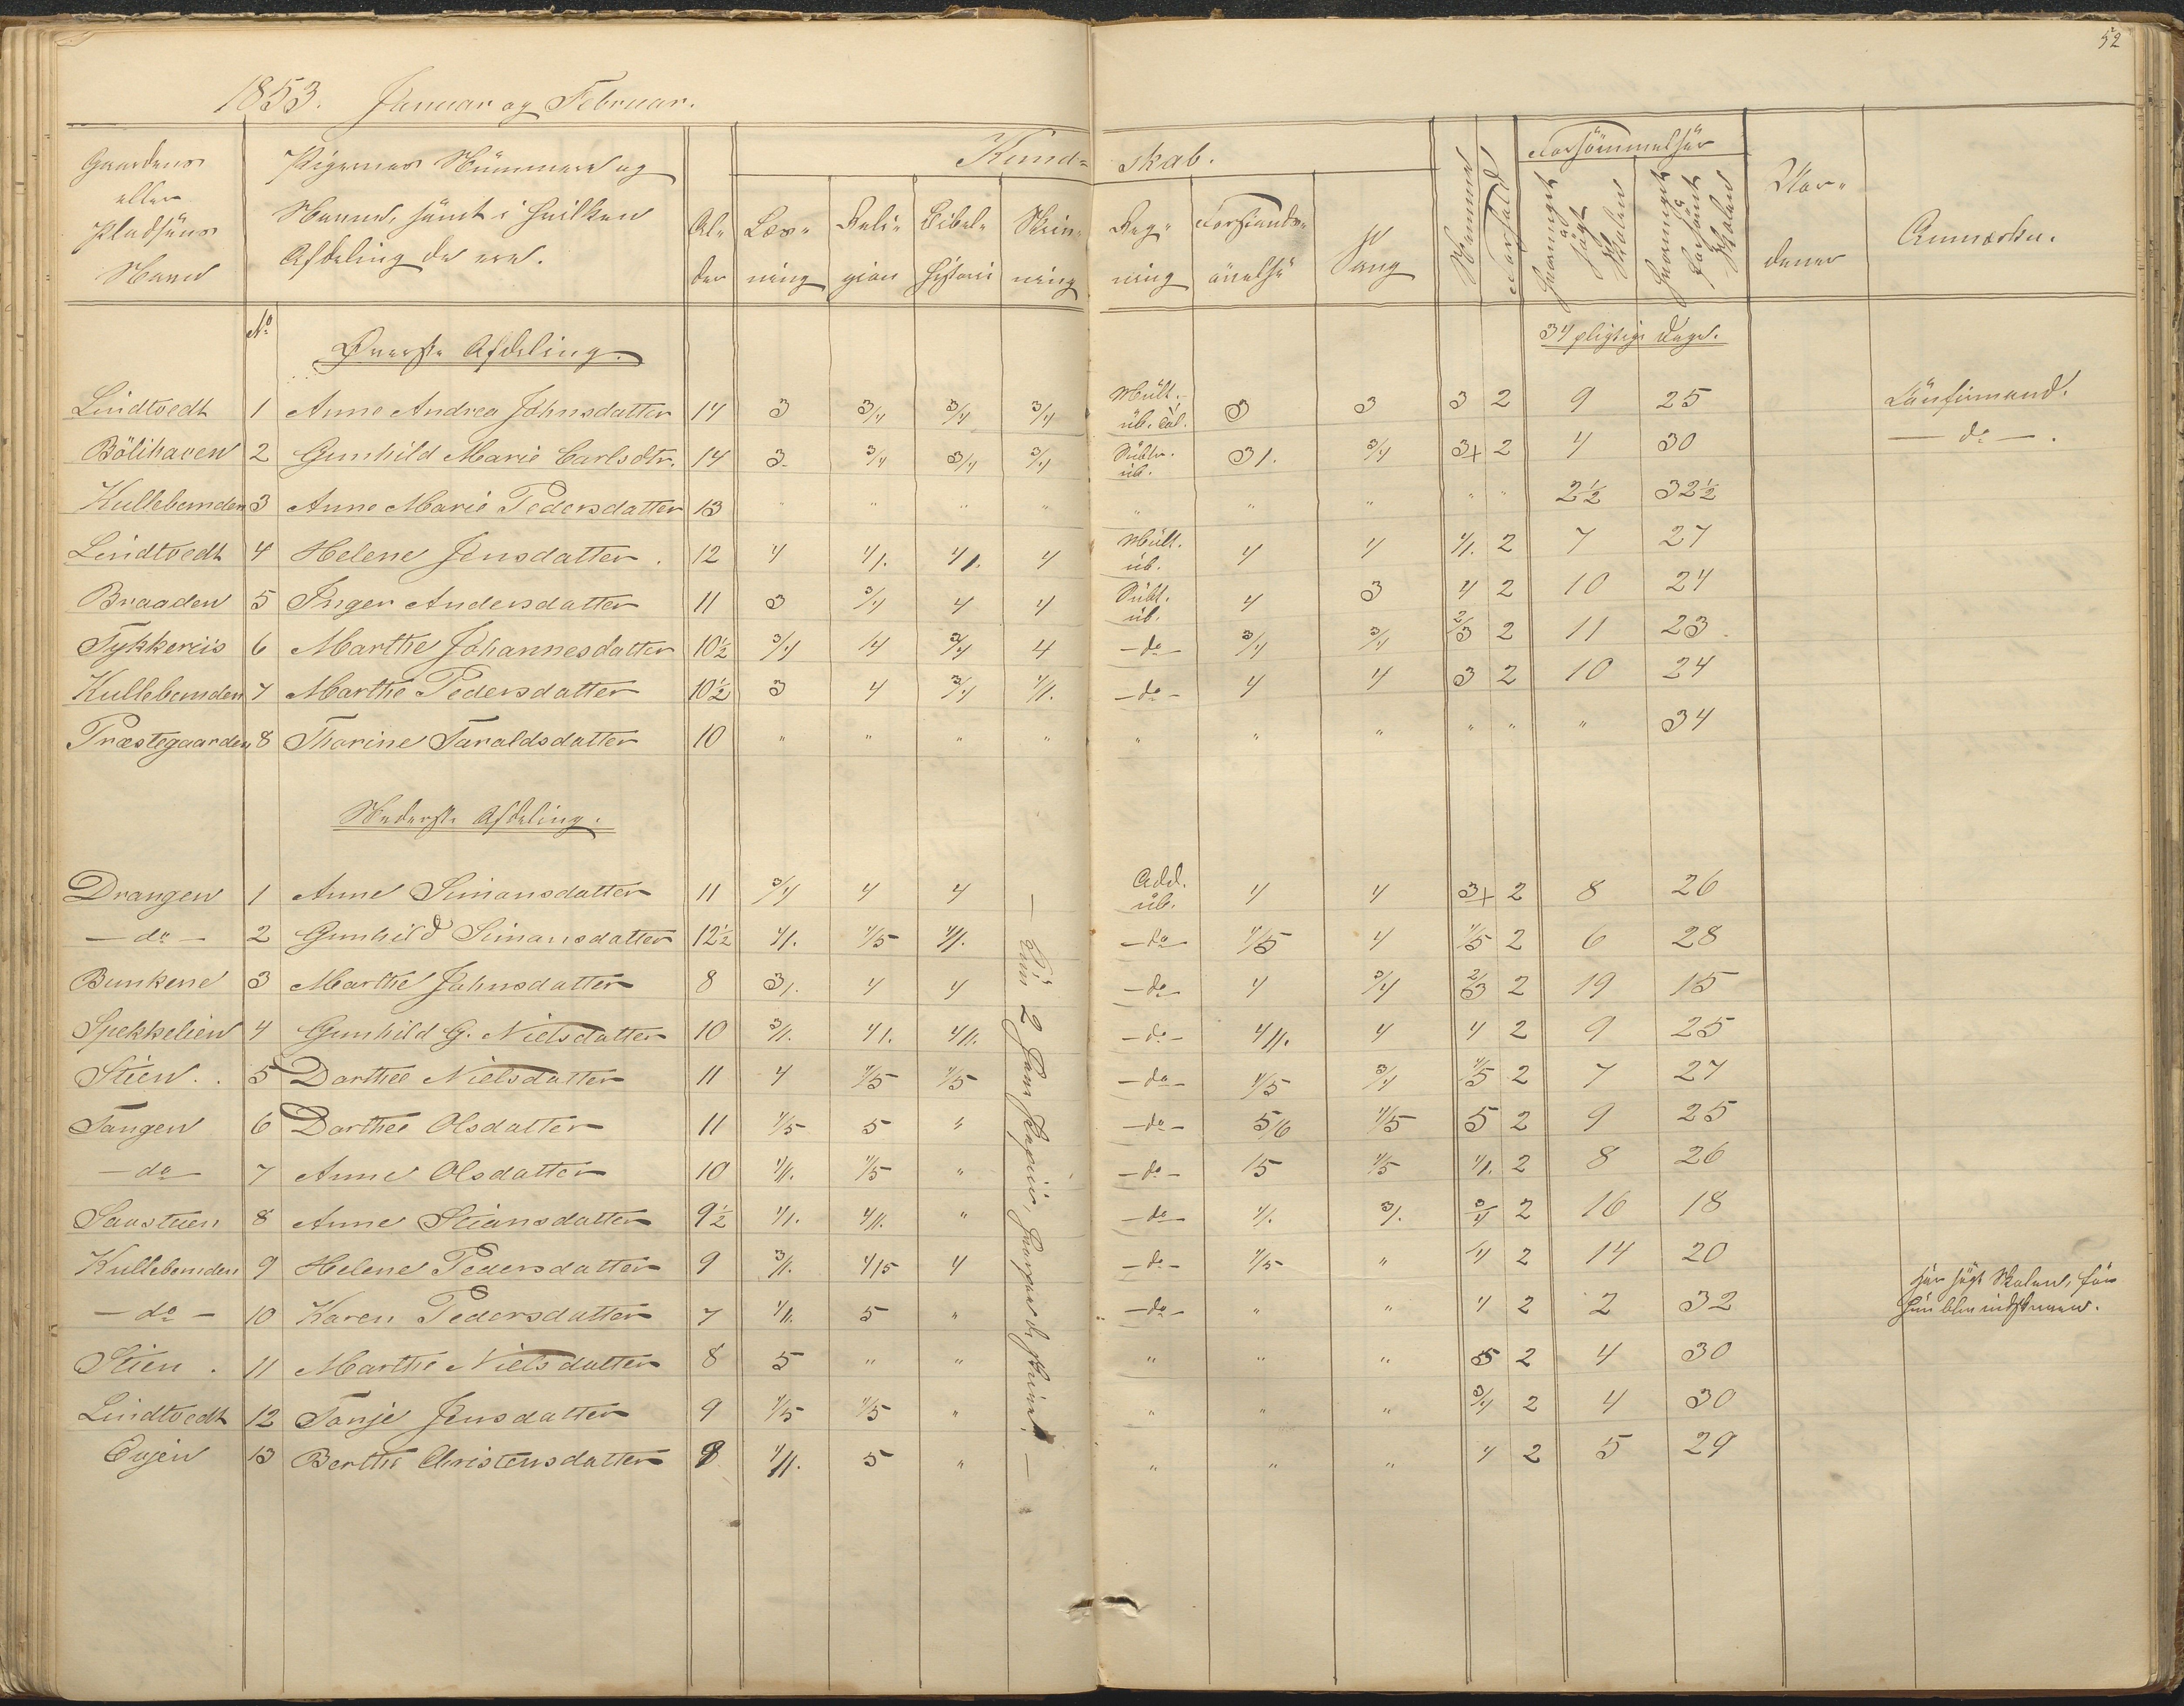 52
1853. Januar og Februar.
Gaardens eller Pladsens Navn | Pigernes Nummere og Navne, samt i hvilken Afdeling de ere. | Alder | Kundskab. | Nemme | Forhold | Forsömmelser | Skoedener | Anmærkn.
Læsning | Religion | Bibelhistorie | Skrivning | Regning | Forstandsövelse | Sang | Hvormeget sögt Skolen | Hvormeget forsömt Skolen
No
Øverste Afdeling. | 34 pligtige Dage.
Lindtvedt 1 Anne Andrea Johnsdatter 14 3 3/4 3/4 3/4 Mult. üb. 3 3 3 2 9 25
Bölihaven 2 Gunhild Marie Carlsdtr. 14 3 3/4 3/4 3/4 Subtr. üb. 3/. 3/4 3+ 2 4 30 — do — .
Kullebunden 3 Anne Marie Pedersdatter 13 " " " " " " " " " 2½ 32½
Lindtvedt 4 Helene Jensdatter. 12 4 4/. 4/. 4 Mult. üb. 4 4 4/. 2 7 27
Braaden 5 Inger Andersdatter 11 3 3/4 4 4 Subt. üb. 4 3 4 2 10 24
Tykkereis 6 Marthe Johannesdatter 10½ 3/4 4 3/4 4 — do — 3/4 3/4 2/3 2 11 23.
Kullebunden 7 Marthe Pedersdatter 10½ 3 4 3/4 4/. — do — 4 4 3 2 10 24
Præstegaarden 8 Thorine Taraldsdatter 10 " " " " " " " " " " 34
Nederste Afdeling.
Drangen 1 Anne Simonsdatter 11 3/4 4 4 Add. üb. 4 4 3+ 2 8 26
— do — 2 Gunhild Simonsdatter 12½ 4/. 4/5 4/. — do — 4/5 4 4/5 2 6 28
Bunkene 3 Marthe Johnsdatter 8 3/. 4 4 — do — 4 3/4 2/3 2 19 15
Spekkelien 4 Gunhild G. Nielsdatter 10 3/. 4/. 4//. — do — 4//. 4 4 2 9 25
Stien.. 5 Dorthee Nielsdatter 11 4 4/5 4/5 — do — 4/5 3/4 4/5 2 7 27
Tangen 6 Dorthee Olsdatter 11 4/5 5 " — do — 5/6 4/5 5 2 9 25
— do — 7 Anne Olsdatter 10 4/. 4/5 " — do — 15 4/5 4/. 2 8 26
Saustuen 8 Anne Stiansdatter 9½ 4/. 4//. " — do — 4/. 3/. 3/4 2 16 18
Kullebunden 9 Helene Pedersdatter 9 3/. 4/5 4 — do — 4/5 " 4 2 14 20
— do — 10 Karen Pedersdatter 7 4/. 5 " — do — " " 4 2 2 32 har sögt Skolen, för hun blev indskreven.
Stien. 11 Marthe Nielsdatter 8 5 " " " " " 5 2 4 30
Lindtvedt 12 Tonje Jensdatter 9 4/5 4/5 " " " " 3/4 2 4 30
Eujen 13 Berthe Christensdatter 8 4//. 5 " " " " 4 2 5 29